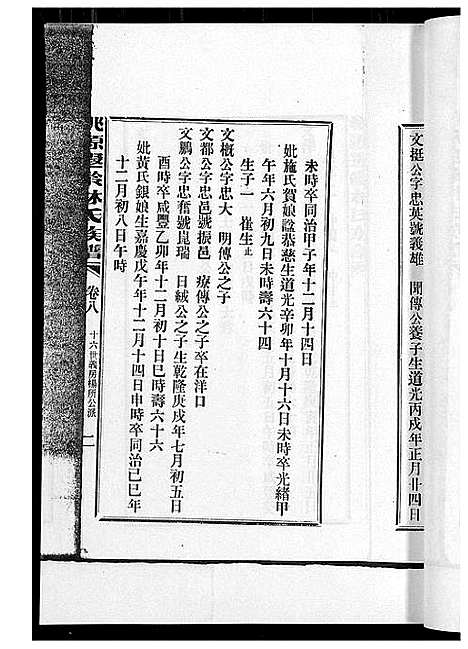 文挺公字忠英號義雄　聞傳公養子生道光丙戌年正月廿四日
未時卒同治甲子年十二月十四日
妣施氏賀娘諡恭慈生道光辛卯年十月十六日未時卒光緒甲
午年六月初九日未時壽六十四
生子一　崔生止
文概公字忠大　明傳公之子
文都公字忠邑號振邑　療傳公之子卒在洋口
文鵬公字忠奮號崑瑞　日絨公之子生乾隆庚戌年七月初五日
酉時卒咸豐乙卯年十二月初十日巳時壽六十六
妣黃氏銀娘生嘉慶戊午年十二月十四日申時卒同治己巳年
十二月初八日午時
林氏族譜
卷八
十六世義房楊所公派